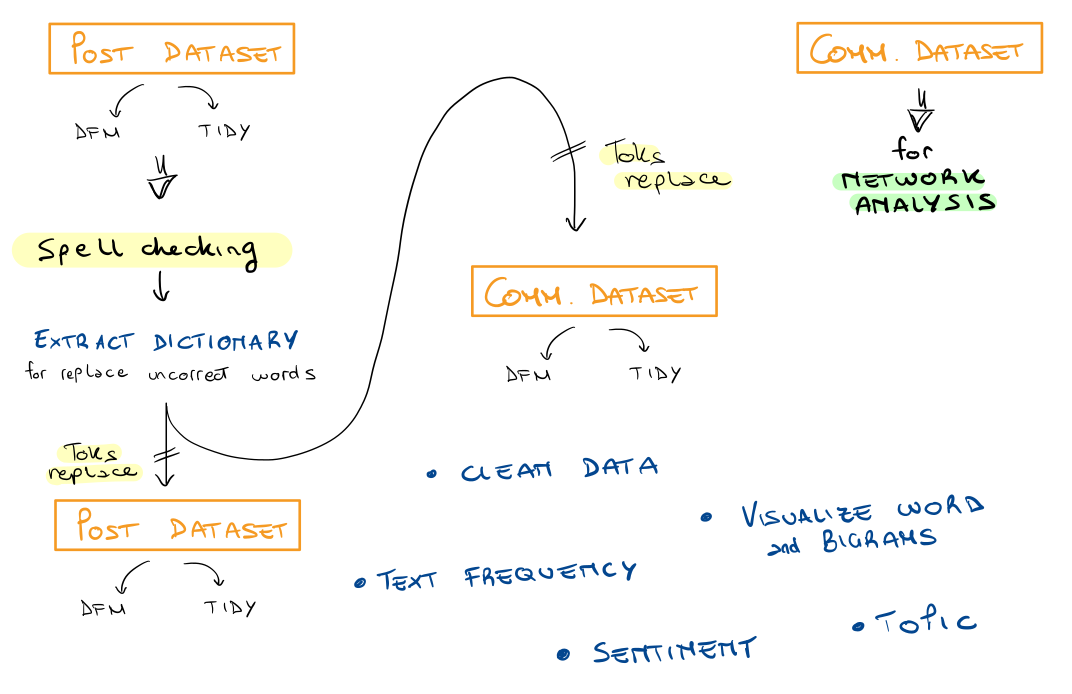 POST DATASET
DFM TIDY
Spell checking
EXTRACT DICTIONARY
for replace uncorrect words
Toks
replace
POST DATASET
DFM TIDY
Toks
replace
COMM. DATASET
DFM TIDY
COMM. DATASET
for
NETWORK
ANALYSIS
• CLEAN DATA
• VISUALIZE WORD
and BIGRAMS
• TEXT FREQUENCY
• TOPIC
• SENTIMENT